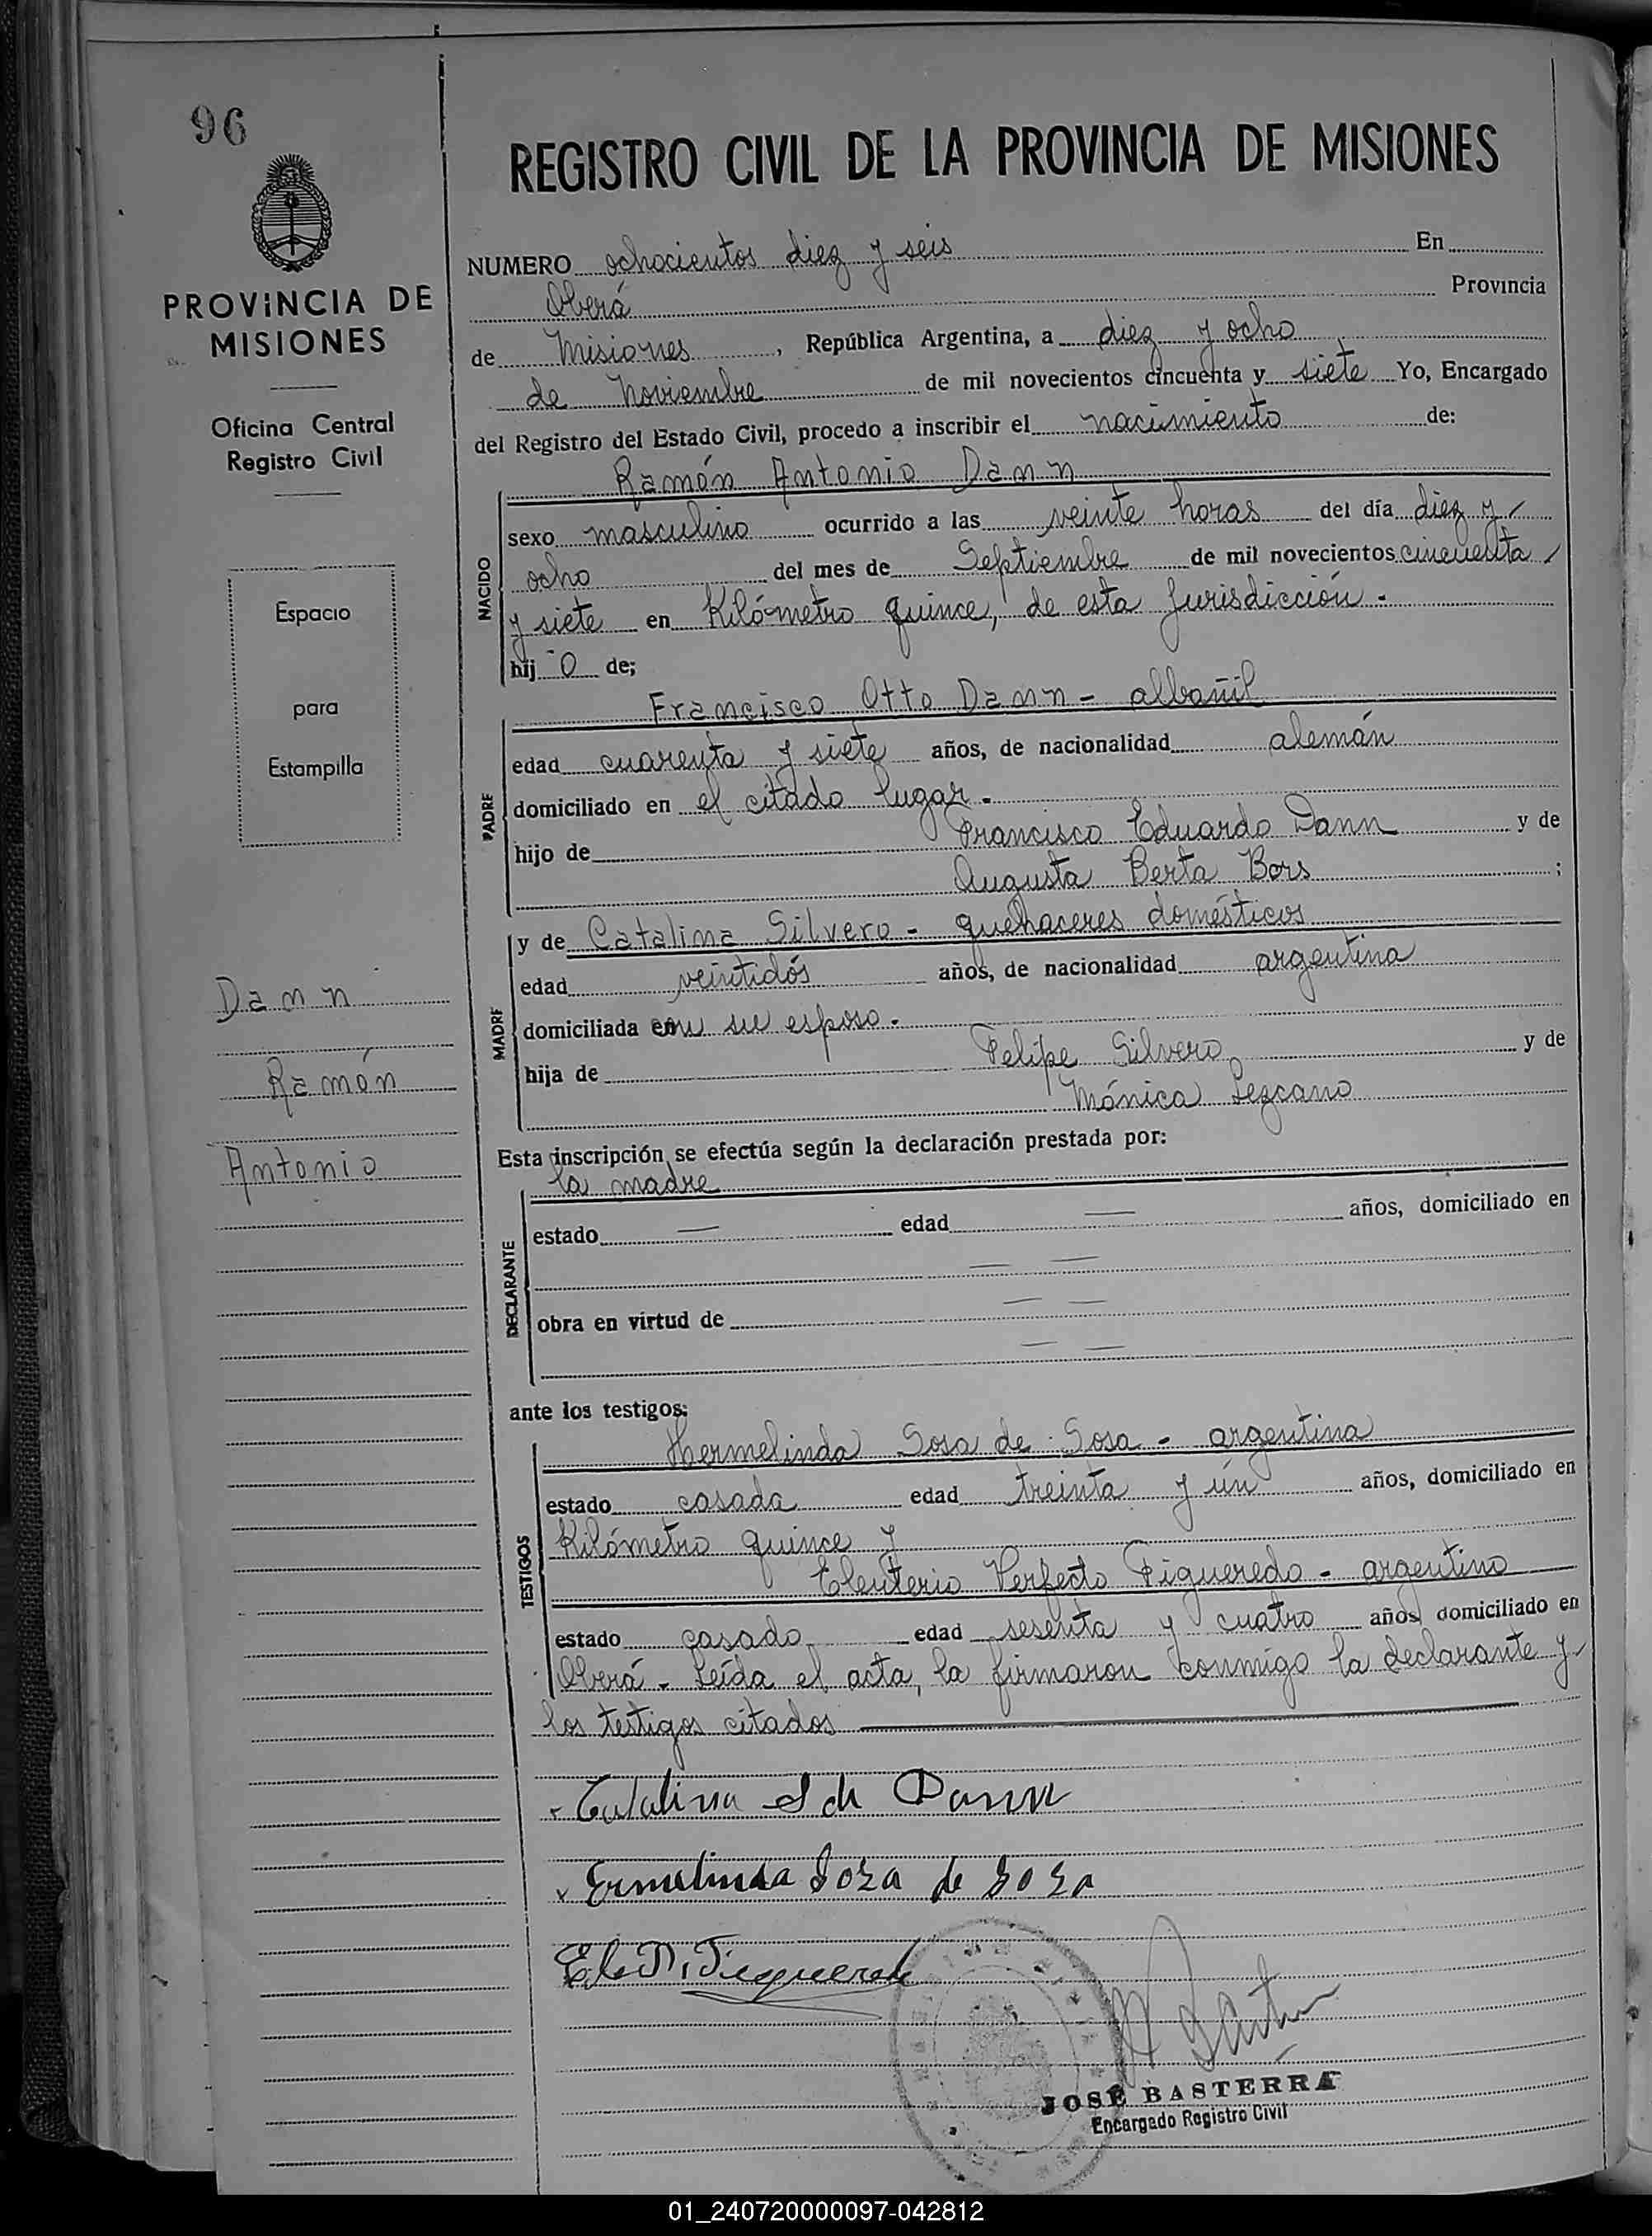 96
PROVINCIA DE
MISIONES
Oficina Central
Registro Civil
Espacio
para
Estampilla
Dann
Ramón
Antonio
REGISTRO CIVIL DE LA PROVINCIA DE MISIONES
NUMERO ochocientos diez y seis En
Oberá Provincia
de Misiones, República Argentina, a diez y ocho
de Noviembre de mil novecientos cincuenta y siete Yo, Encargado
del Registro del Estado Civil, procedo a inscribir el nacimiento de:
Ramón Antonio Dann
NACIDO
sexo masculino ocurrido a las veinte horas del día diez y
ocho del mes de Septiembre de mil novecientos cincuenta
y siete en Kilómetro quince, de esta Jurisdicción.-
hij o de;
Francisco Otto Dann - albañil
PADRE
edad cuarenta y siete años, de nacionalidad alemán
domiciliado en el citado lugar.-
hijo de Francisco Eduardo Dann y de
Augusta Berta Bors ;
y de Catalina Silvero - quehaceres domésticos
MADRE
edad veintidós años, de nacionalidad argentina
domiciliada con su esposo.-
hija de Felipe Silvero y de
Mónica Lezcano
Esta inscripción se efectúa según la declaración prestada por:
la madre
DECLARANTE
estado — edad — años, domiciliado en
— —
obra en virtud de — —
— —
ante los testigos:
Hermelinda Sosa de Sosa - argentina
TESTIGOS
estado casada edad treinta y ún años, domiciliado en
Kilómetro quince y
Eleuterio Perfecto Figueredo - argentino
estado casado edad sesenta y cuatro años, domiciliado en
Oberá - Leída el acta, la firmaron conmigo la declarante y
los testigos citados
Catalina S de Dann
Ermelinda Sosa de Sosa
El. P. Figueredo
JOSÉ BASTERRA
Encargado Registro Civil
01_240720000097-042812